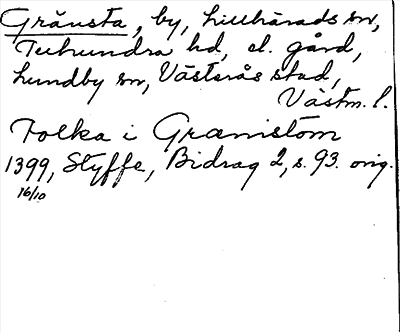 Gränsta, by, Lillhärads sn,
Tuhundra hd, el. gård,
Lundby sn, Västerås stad,
Västm. l.
Folka i Grænistom
1399, Styffe, Bidrag 2, s. 93. orig.
16/10